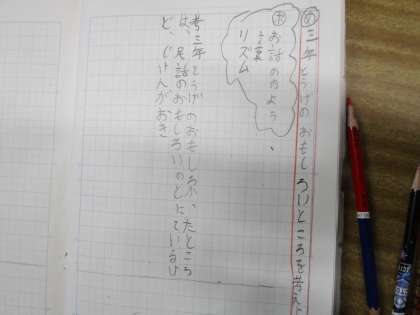 め 三年とうげのおもしろいところを考えよ
お話の内よう
言葉
リズム
考三年とうげのおもしろかったところ
は、民話のおもしろいのとにているけ
ど、じけんがおき